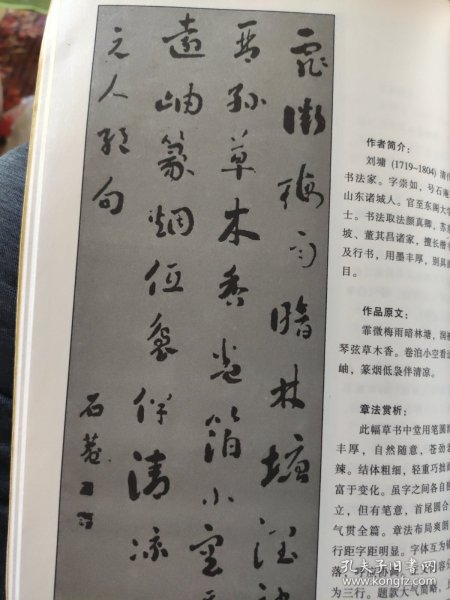 霏微梅雨暗林塘润
琴弦草木香卷箔小空
遠岫篆烟低袅伴清凉
元人絕句
石菴
作者简介:
刘墉 (1719~1804) 清
书法家。字崇如,号石庵
山东诸城人。官至东阁大学
士。书法取法颜真卿,苏东
坡、董其昌诸家,擅长楷书
及行书,用墨丰厚,别具面
目。
作品原文:
霏微梅雨暗林塘,润
琴弦草木香。卷泊小空看
岫,篆烟低袅伴清凉。
章法赏析:
此幅草书中堂用笔圆
丰厚,自然随意,苍劲
辣。结体粗细,轻重巧拙
富于变化。虽字之间各自
立,但有笔意,首尾圆合
气贯全篇。章法布局爽朗
行距字距明显。字体互为
为三行。题款大气简略,
孔夫子旧书网